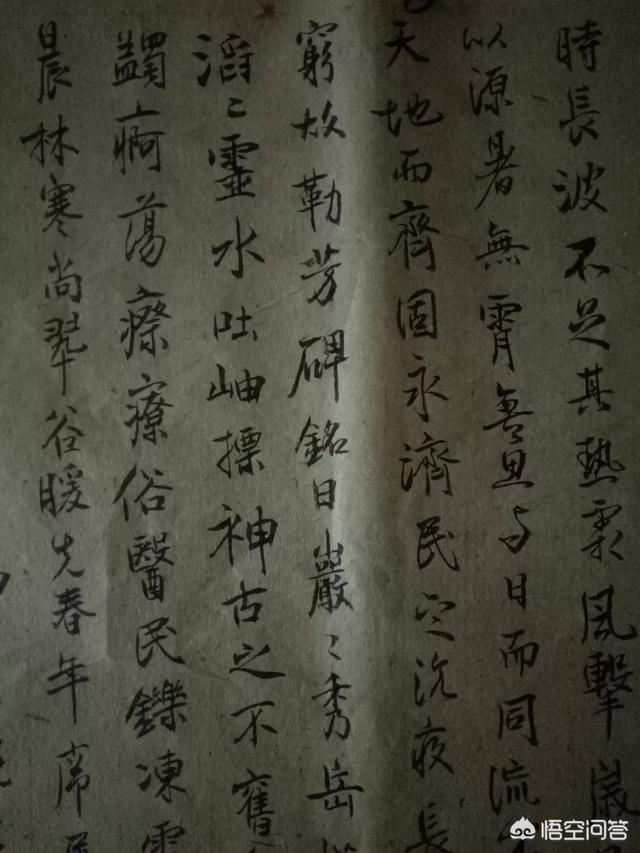 時長波不足其熱霜風擊
以源暑無霄無旦与日而同流
天地而齊固永濟民之沉疾長
窮故勒芳碑銘曰巖〻秀岳
滔〻靈水吐岫摽神古之不舊
蠲痾蕩瘵療俗醫民鑠凍霜
晨林寒尚翠谷暖先春年席
悟空问答